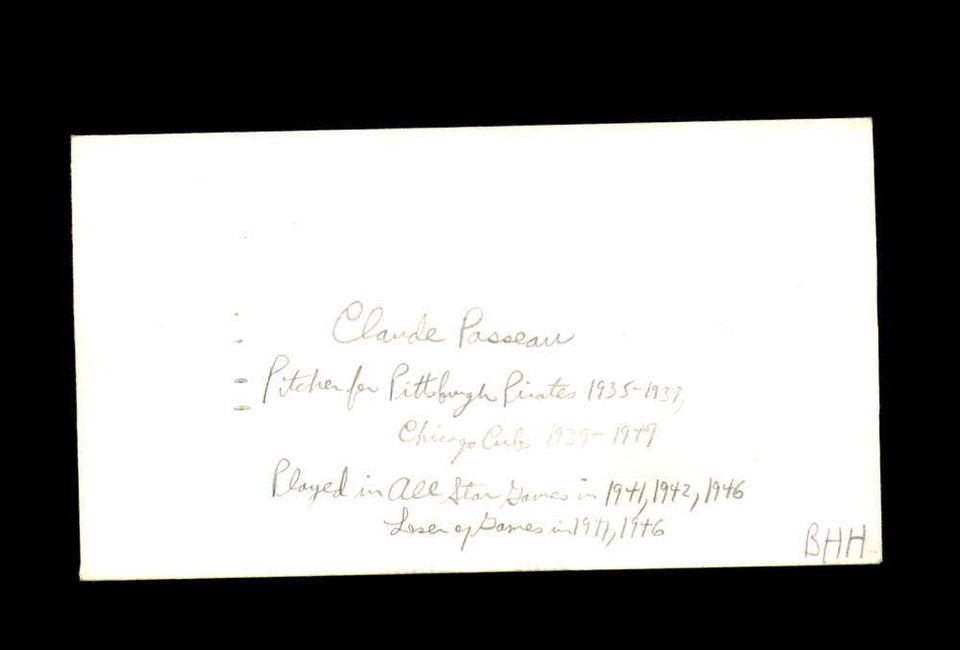 Claude Passeau
Pitcher for Pittsburgh Pirates 1935-1939,
Chicago Cubs 1939-1949
Played in All Star Games in 1941, 1942, 1946
Loser of Games in 1941, 1946
BHH